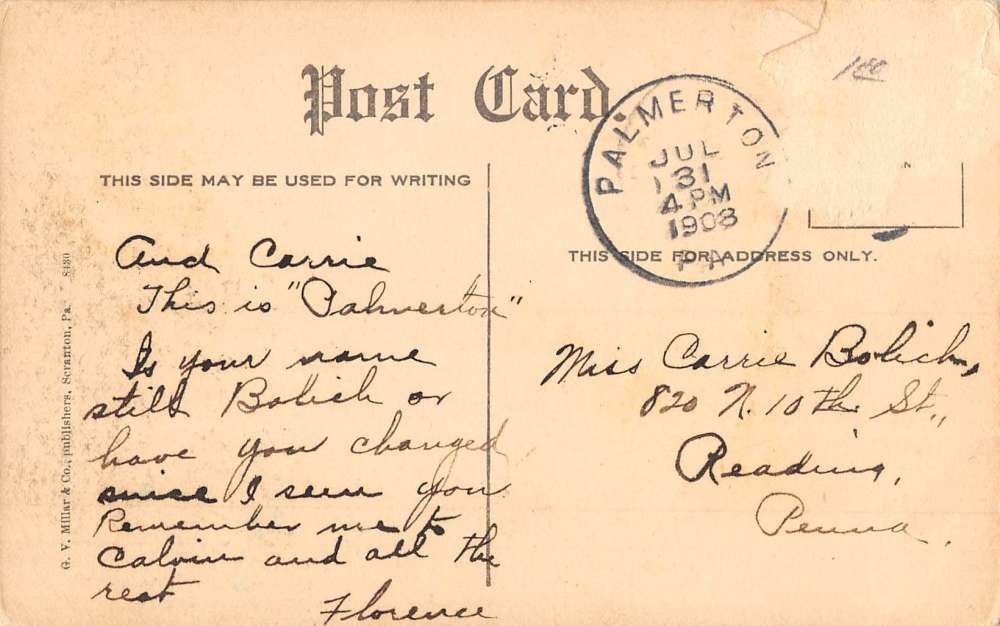 Post Card.
THIS SIDE MAY BE USED FOR WRITING
THIS SIDE FOR ADDRESS ONLY.
PALMERTON
JUL
31
4 PM
1908
PA
100
And Carrie
This is "Palmerton"
Is your name
still Bolich or
have you changed
snice I seen you
Remember me to
Calvin and all the
rest
Florence
Miss Carrie Bolich,
820 N. 10th St.,
Reading,
Penna.
G. V. Millar & Co., publishers, Scranton, Pa.